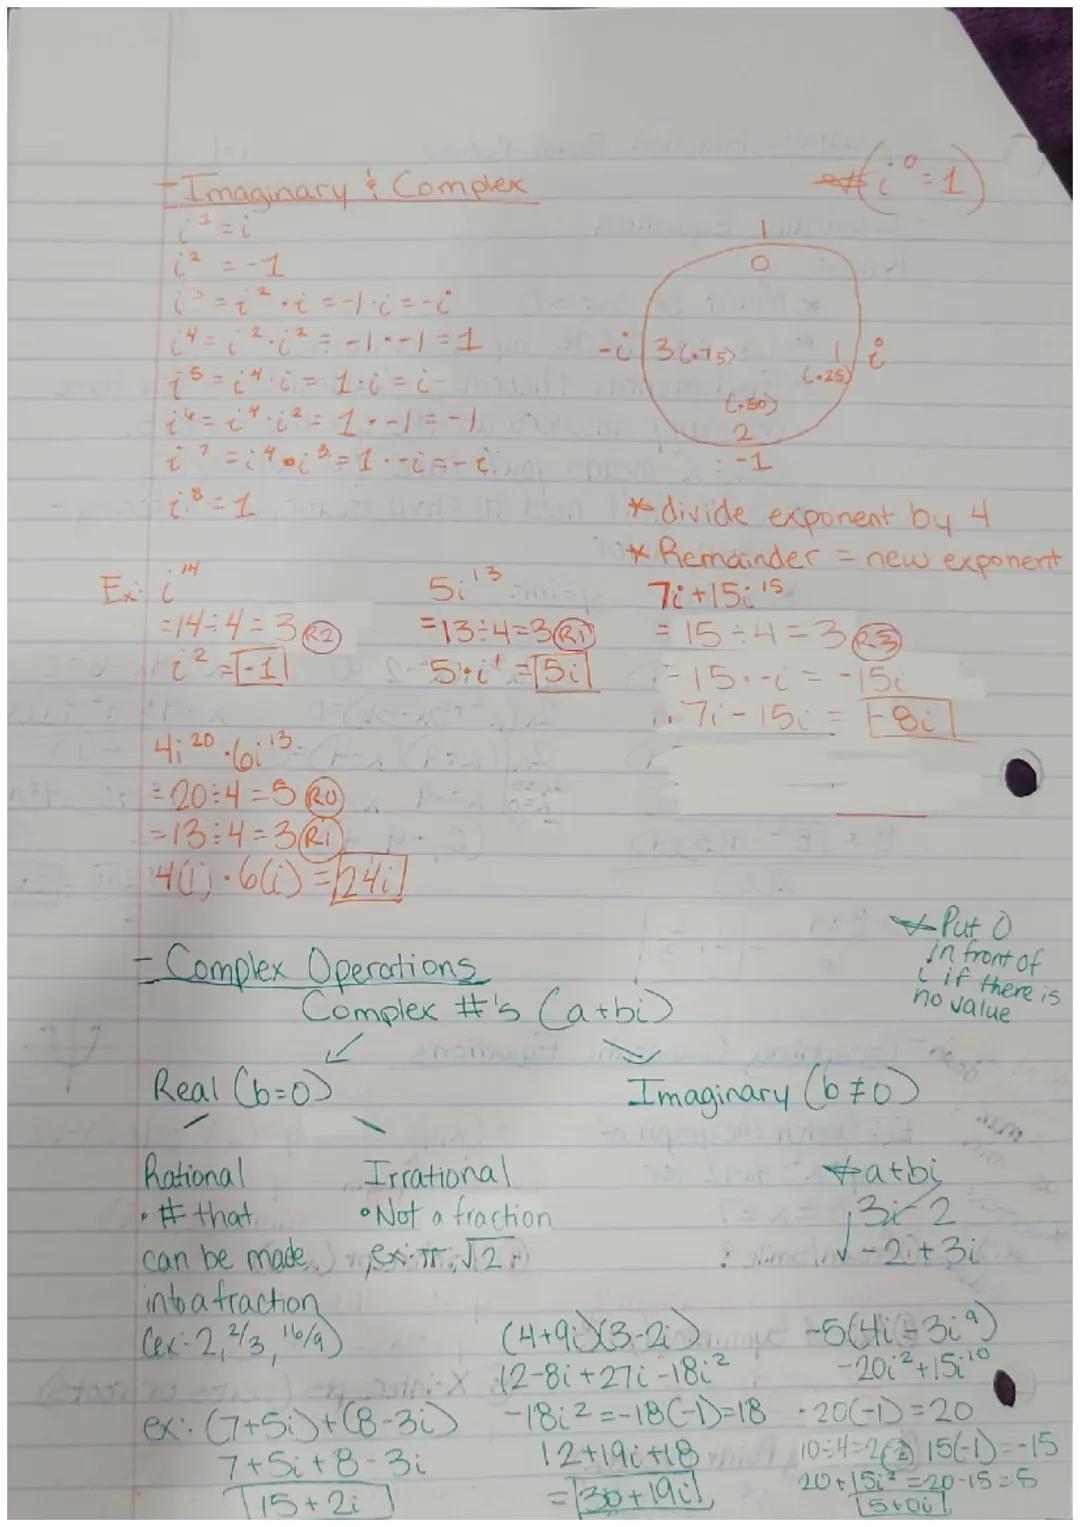 - Imaginary & Complex
* (i⁰ = 1)
i¹ = i
i² = -1
i³ = i² · i = -1 · i = -i
i⁴ = i² · i² = -1 · -1 = 1
i⁵ = i⁴ · i = 1 · i = i
i⁶ = i⁴ · i² = 1 · -1 = -1
i⁷ = i⁴ · i³ = 1 · -i = -i
i⁸ = 1
1
0
-i 3(.75) 1 i
(.25)
(.50)
2
-1
* divide exponent by 4
* Remainder = new exponent
Ex: i¹⁴
= 14÷4 = 3 R2
i² = -1
5i¹³
= 13÷4 = 3 R1
5 · i¹ = 5i
7i + 15i¹⁵
= 15÷4 = 3 R3
= 15 · -i = -15i
7i - 15i = -8i
4i²⁰ · 6i¹³
= 20÷4 = 5 R0
= 13÷4 = 3 R1
4(1) · 6(i) = 24i
* Put 0
in front of
i if there is
no value
- Complex Operations
Complex #'s (a+bi)
Real (b=0)
Imaginary (b≠0)
Rational
• # that
can be made
into a fraction
(ex: 2, 2/3, 16/9)
Irrational
• Not a fraction
ex: π, √2
* a+bi
3i-2
√ -2+3i
ex: (7+5i)+(8-3i)
7+5i+8-3i
15+2i
(4+9i)(3-2i)
12-8i+27i-18i²
-18i² = -18(-1)=18
12+19i+18
= 30+19i
-5(4i-3i⁹)
-20i²+15i¹⁰
-20(-1)=20
10÷4=2 R2 15(-1)=-15
20+15i²=20-15=5
5+0i